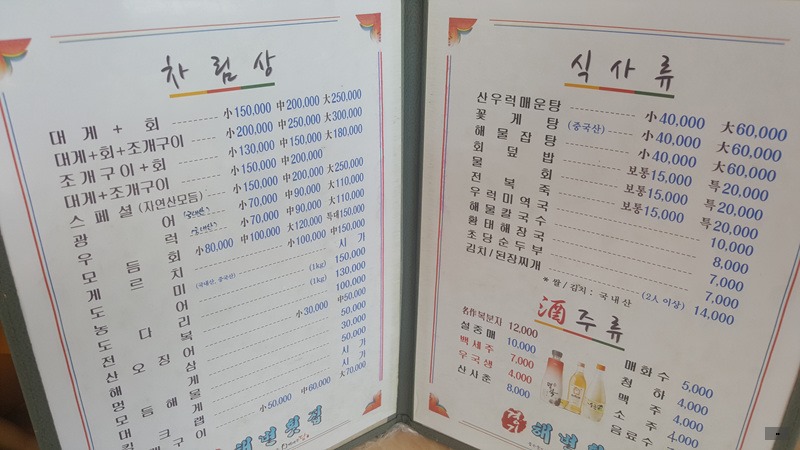 차림상
대게 + 회 小150,000 中200,000 大250,000
대게+회+조개구이 小200,000 中250,000 大300,000
조개구이+회 小130,000 中150,000 大180,000
대게+조개구이 小150,000 中200,000
스페셜(자연산모듬) 小150,000 中200,000 大250,000
광어 小70,000 中90,000 大110,000
우럭 小70,000 中90,000 大110,000
小80,000 中100,000 大120,000 특대150,000
小100,000 中150,000
시가
(국내산, 중국산) (1kg) 150,000
(1kg) 130,000
100,000
小30,000 中50,000
50,000
30,000
50,000
시가
시가
小50,000 中60,000 大70,000
식사류
산우럭매운탕 小40,000 大60,000
꽃게탕 (중국산) 小40,000 大60,000
해물잡탕 小40,000 大60,000
회덮밥 보통15,000 특20,000
물회 보통15,000 특20,000
전복죽 보통15,000 특20,000
우럭미역국 10,000
해물칼국수 8,000
황태해장국 7,000
초당순두부 7,000
김치/된장찌개 (2人 이상) 14,000
* 쌀/김치 : 국내산
酒주류
名作복분자 12,000
설중매 10,000
백세주 7,000
우국생 4,000
산사춘 8,000
매화수 5,000
청하 4,000
맥주 4,000
소주 4,000
음료수